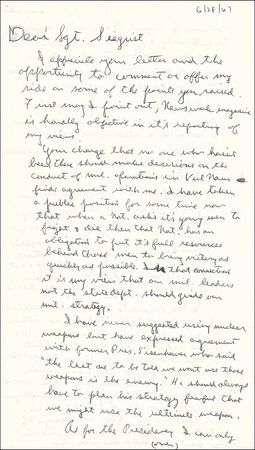 6/28/67
Dear Sgt. Seegrist
I appreciate your letter and the
opportunity to comment or offer my
side on some of the points you raised.
First may I point out, Newsweek magazine
is hardly objective in it's reporting of
my views.
Your charge that no one who hasn't
been they should make decisions on the
conduct of mil. operations in Viet Nam
finds agreement with me. I have taken
a public position for some time now
that when a Nat. asks it's young men to
fight & die then that Nat. has an
obligation to put it's full resources
behind those men to bring victory as
quickly as possible. In that connection
it is my view that our mil. leaders
not the state dept. should guide our
mil. strategy.
I have never suggested using nuclear
weapons but have expressed agreement
with former Pres. Eisenhower who said
"the last one to be told we wont use those
weapons is the enemy." He should always
have to plan his strategy fearful that
we might use the ultimate weapon.
As for the Presidency I can only
(over)